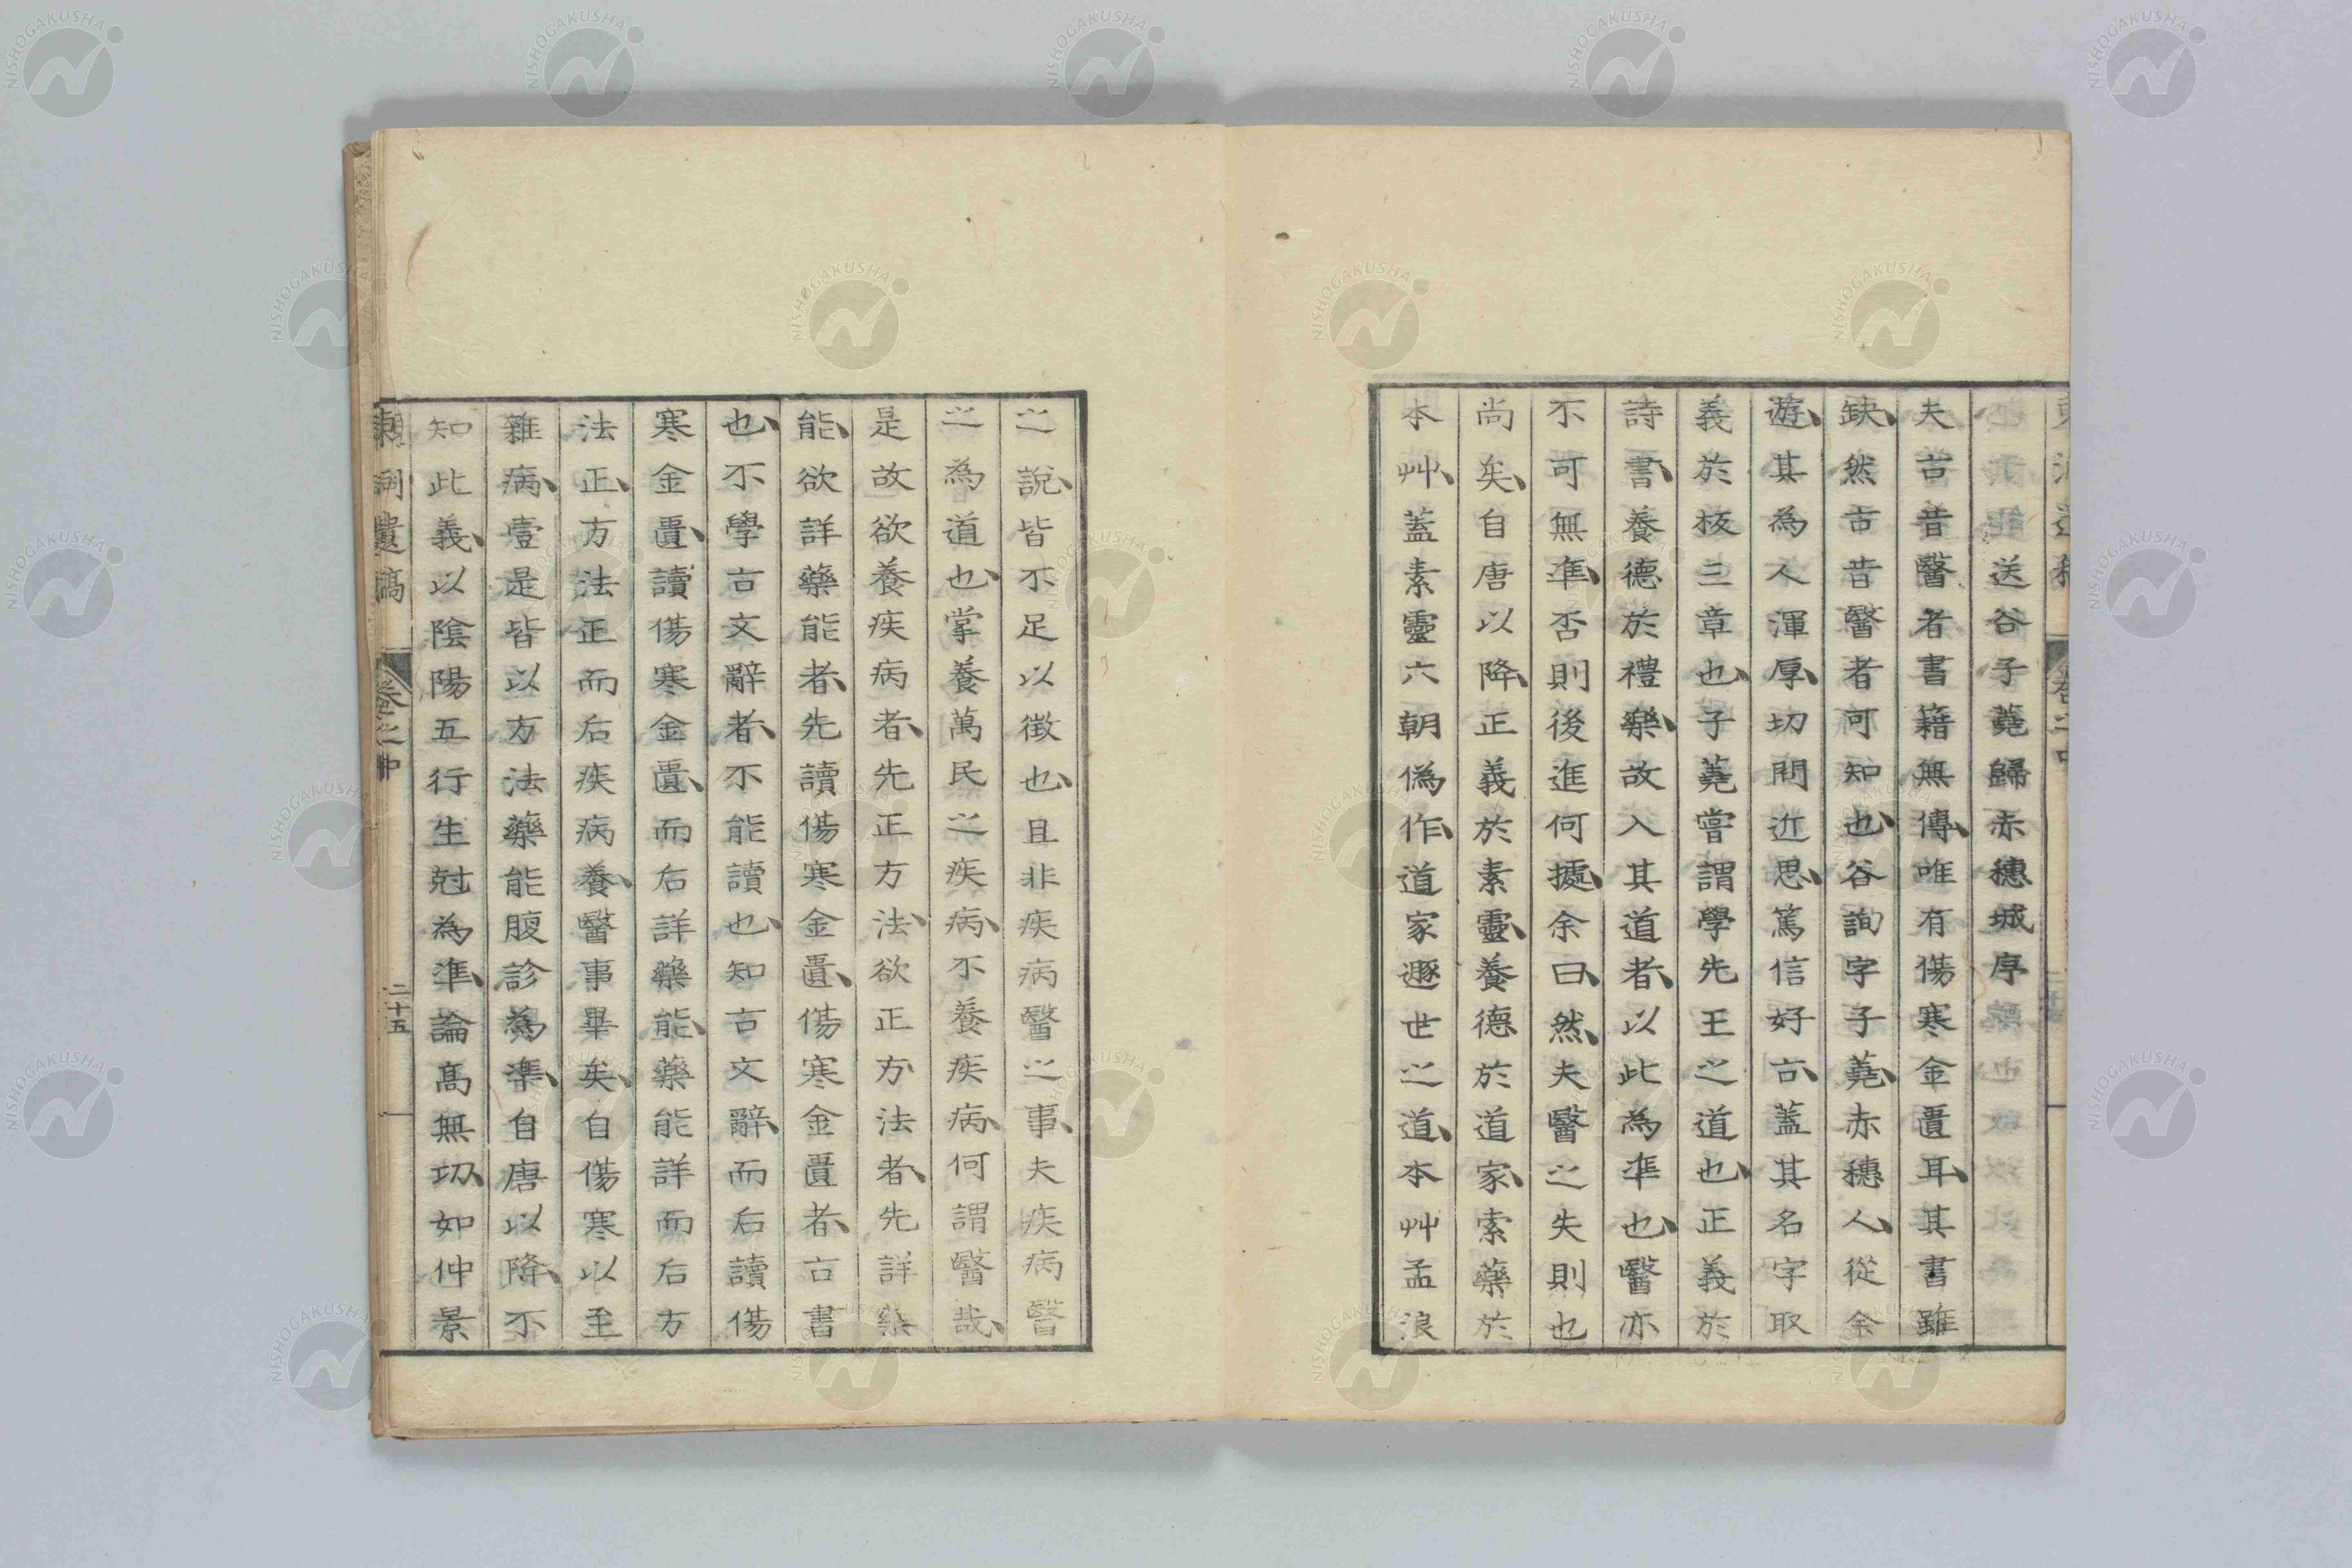 送谷子蕘歸赤穗城序
夫古昔醫者書籍無傳、唯有傷寒金匱耳、其書雖
缺、然古昔醫者可知也、谷詢字子蕘、赤穗人、從余
遊、其為人渾厚、切問近思、篤信好古、蓋其名字取
義於板三章也、子蕘嘗謂學先王之道也、正義於
詩書、養德於禮樂、故入其道者、以此為準也、醫亦
不可無準、否則後進何據、余曰、然、夫醫之失則也
尚矣、自唐以降、正義於素靈、養德於道家、索藥於
本艸、蓋素靈六朝偽作、道家遯世之道、本艸孟浪
之說、皆不足以徵也、且非疾病醫之事、夫疾病醫
之為道也、掌養萬民之疾病、不養疾病、何謂醫哉、
是故欲養疾病者、先正方法、欲正方法者、先詳藥
能、欲詳藥能者、先讀傷寒金匱、傷寒金匱者、古書
也、不學古文辭者、不能讀也、知古文辭、而后讀傷
寒金匱、讀傷寒金匱、而后詳藥能、藥能詳而后方
法正、方法正而后疾病養、醫事畢矣、自傷寒以至
雜病、壹是皆以方法藥能腹診為準、自唐以降、不
知此義、以陰陽五行生尅為準、論高無功、如仲景
東洞遺稿 卷之中 二十五